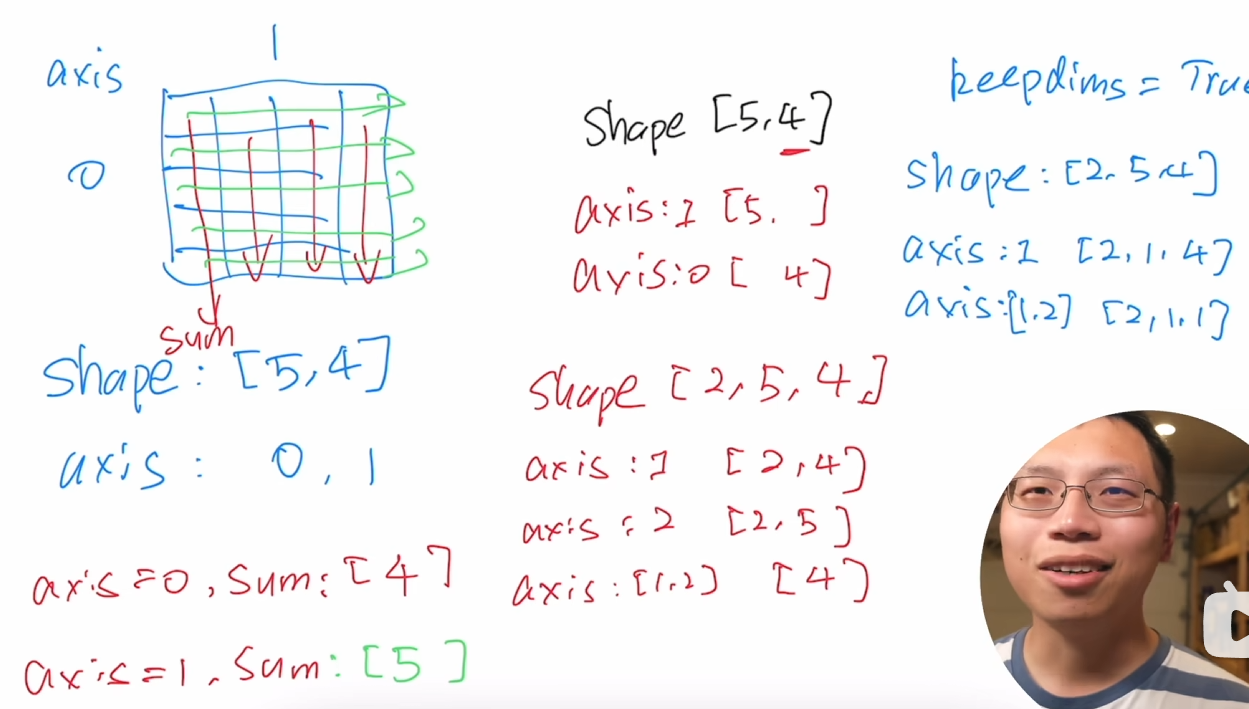 1
axis
0
sum
shape: [5,4]
axis: 0, 1
axis=0, sum: [4]
axis=1, sum: [5]
shape [5,4]
axis:1 [5. ]
axis:0 [ 4]
shape [2,5,4]
axis:1 [2,4]
axis:2 [2,5]
axis:[1,2] [4]
keepdims = True
shape: [2,5,4]
axis:1 [2,1,4]
axis:[1,2] [2,1,1]